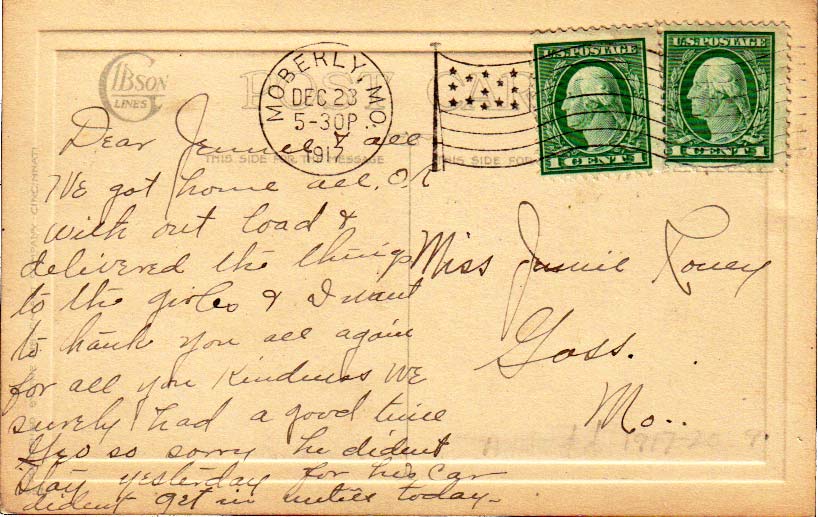 GIBSON
LINES
POST CARD
MOBERLY, MO.
DEC 23
5-30P
1917
U.S. POSTAGE
1 CENT 1
U.S. POSTAGE
1 CENT 1
THIS SIDE FOR THE MESSAGE
THIS SIDE FOR
Dear Jennie & all
We got home all OK
with out load &
delivered the things
to the girls & I want
to thank you all again
for all you kindness We
surely had a good time
Geo so sorry he dident
stay yesterday for his car
dident get in until today-
Miss Jennie Roney
Goss.
Mo..
1917-20
CINCINNATI